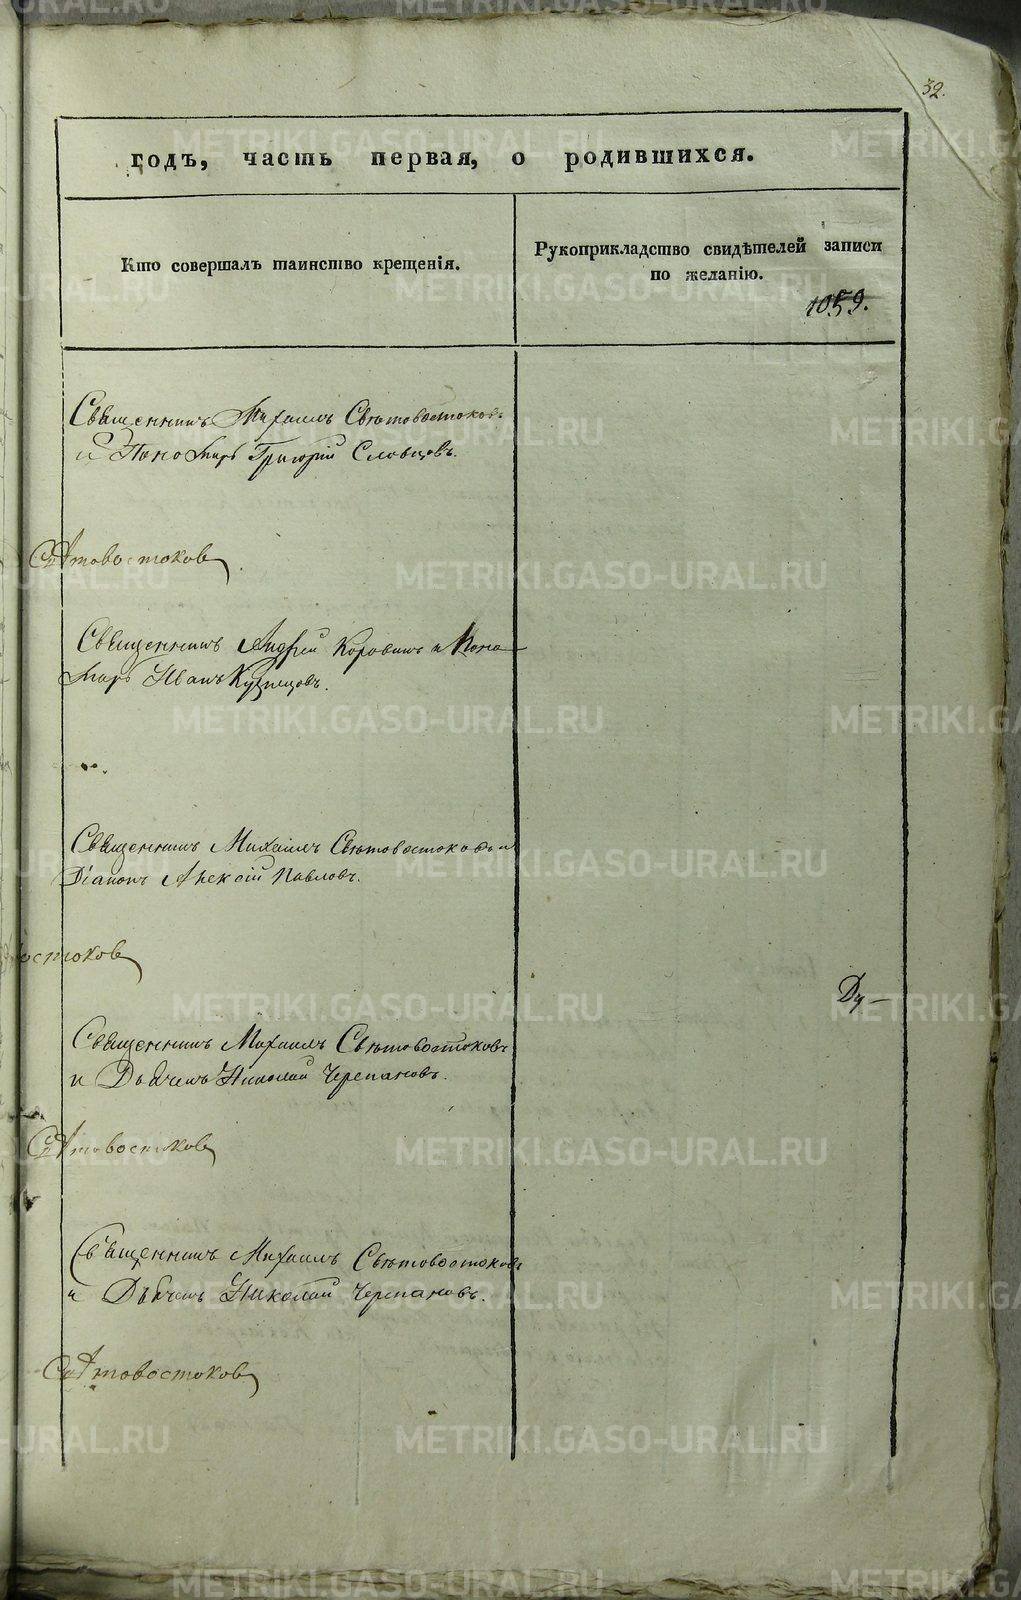 32.
годъ, часть первая, о родившихся.
Кто совершалъ таинство крещенія.
Рукоприкладство свидѣтелей записи
по желанію.
1059.
Священникъ Михаилъ Свѣтовостоковъ
и Пономарь Григорій Словцовъ.
Свѣтовостоков
Священникъ Андрей Коровинъ и Поно-
марь Иванъ Кузнецовъ.
Священникъ Михаилъ Свѣтовостоковъ и
Діаконъ Алексій Павловъ.
востоков
Ду-
Священникъ Михаилъ Свѣтовостоковъ
и Дьячекъ Николай Черепановъ.
Свѣтовостоков
Священникъ Михаилъ Свѣтовостоковъ
и Дьячекъ Николай Черепановъ.
Свѣтовостоков
METRIKI.GASO-URAL.RU